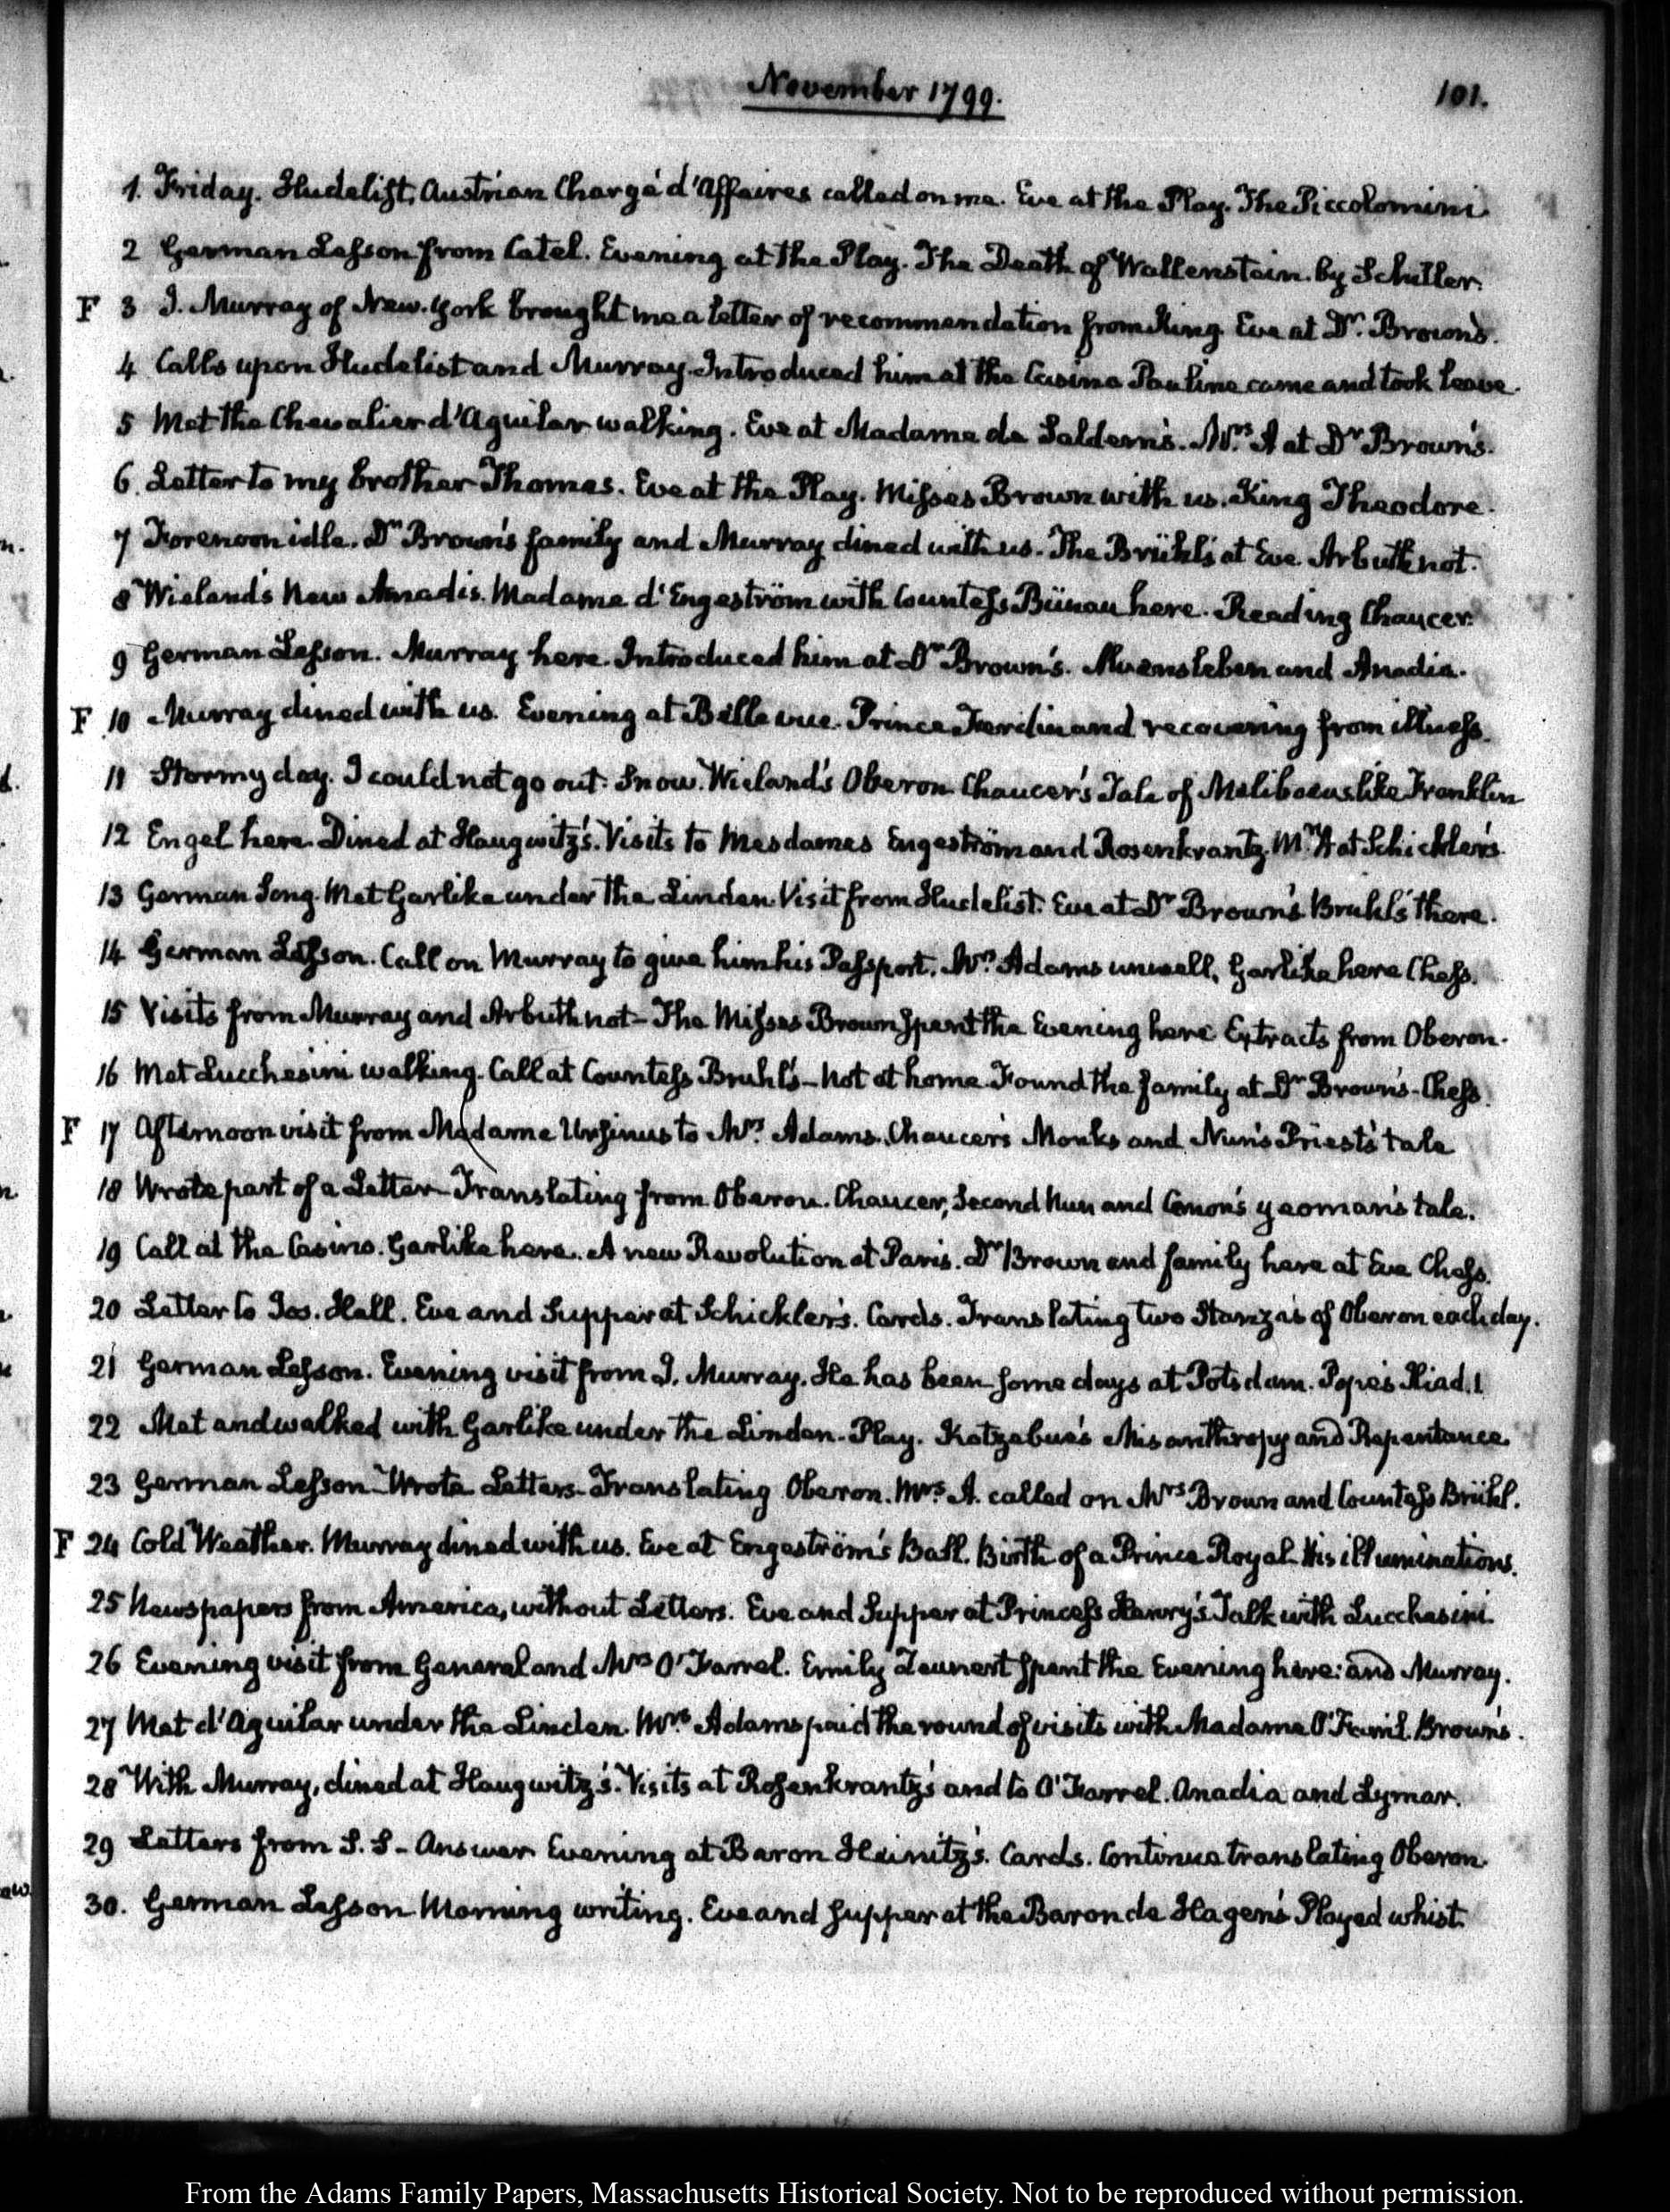 November 1799.
101.
1. Friday. Hudelist, Austrian Chargé d'Affaires called on me. Eve at the Play. The Piccolomini
2 German Lesson from Catel. Evening at the Play. The Death of Wallenstein by Schiller.
F 3 J. Murray of New-York brought me a letter of recommendation from King. Eve at Dr. Brown's.
4 Calls upon Hudelist and Murray. Introduced him at the Casino Pauline came and took leave.
5 Met the Chevalier d'Aguilar walking. Eve at Madame de Saldern's. Mrs. A at Dr Brown's.
6. Letter to my brother Thomas. Eve at the Play. Misses Brown with us. King Theodore.
7 Forenoon idle. Dr Brown's family and Murray dined with us. The Brühls at Eve. Arbuthnot.
8 Wieland's New Amadis. Madame d'Engeström with Countess Bünau here. Reading Chaucer.
9 German Lesson. Murray here. Introduced him at Dr Brown's. Alvensleben and Anadia.
F 10 Murray dined with us. Evening at Bellevue. Prince Ferdinand recovering from illness.
11 Stormy day. I could not go out. Snow. Wieland's Oberon. Chaucer's Tale of Meliboeus like Franklin
12 Engel here. Dined at Haugwitz's. Visits to Mesdames Engeström and Rosenkrantz. Mrs A at Schickler's.
13 German Song. Met Garlike under the Linden. Visit from Hudelist. Eve at Dr Brown's. Bruhls there.
14 German Lesson. Call on Murray to give him his Passport. Mrs. Adams unwell, Garlike here Chess.
15 Visits from Murray and Arbuthnot - The Misses Brown spent the Evening here. Extracts from Oberon.
16 Met Lucchesini walking. Call at Countess Bruhl's - not at home. Found the family at Dr Brown's - Chess.
F 17 Afternoon visit from Madame Ursinus to Mrs. Adams. Chaucer's Monks and Nun's Priest's tale
18 Wrote part of a Letter - Translating from Oberon. Chaucer, Second Nun and Canon's yeoman's tale.
19 Call at the Casino. Garlike here. A new Revolution at Paris. Dr Brown and family here at Eve Chess.
20 Letter to Jos. Hall. Eve and Supper at Schickler's. Cards. Translating two Stanza's of Oberon each day.
21 German Lesson. Evening visit from J. Murray. He has been some days at Potsdam. Pope's Iliad. 1
22 Met and walked with Garlike under the Linden. Play. Kotzebue's Misanthropy and Repentance.
23 German Lesson - Wrote Letters - Translating Oberon. Mrs. A. called on Mrs Brown and Countess Brühl.
F 24 Cold Weather. Murray dined with us. Eve at Engeström's Ball. Birth of a Prince Royal. His illuminations.
25 Newspapers from America, without Letters. Eve and Supper at Princess Henry's. Talk with Lucchesini.
26 Evening visit from General and Mrs O'Farrel. Emily spent the Evening here: and Murray.
27 Met d'Aguilar under the Linden. Mrs. Adams paid the round of visits with Madame O'Farril. Brown's.
28 With Murray, dined at Haugwitz's. Visits at Rosenkrantz's and to O'Farrel. Anadia and Lymar.
29 Letters from S. S - Answer Evening at Baron Heinitz's. Cards. Continue translating Oberon.
30. German Lesson Morning writing. Eve and supper at the Baron de Hagen's Played whist.
From the Adams Family Papers, Massachusetts Historical Society. Not to be reproduced without permission.